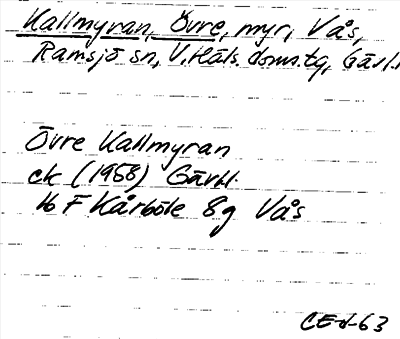 Kallmyran, Övre, myr, Vås,
Ramsjö sn, V. Häls. doms.tg, Gävl.
Övre Kallmyran
ek (1958) Gävl.
16 F Kårböle 8g Vås
CE-63